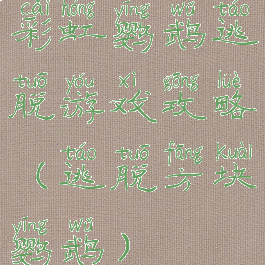 cǎi hóng yīng wǔ táo
彩虹鹦鹉逃
tuō yóu xì gōng lüè
脱游戏攻略
táo tuō fāng kuài
（逃脱方块
yīng wǔ
鹦鹉）